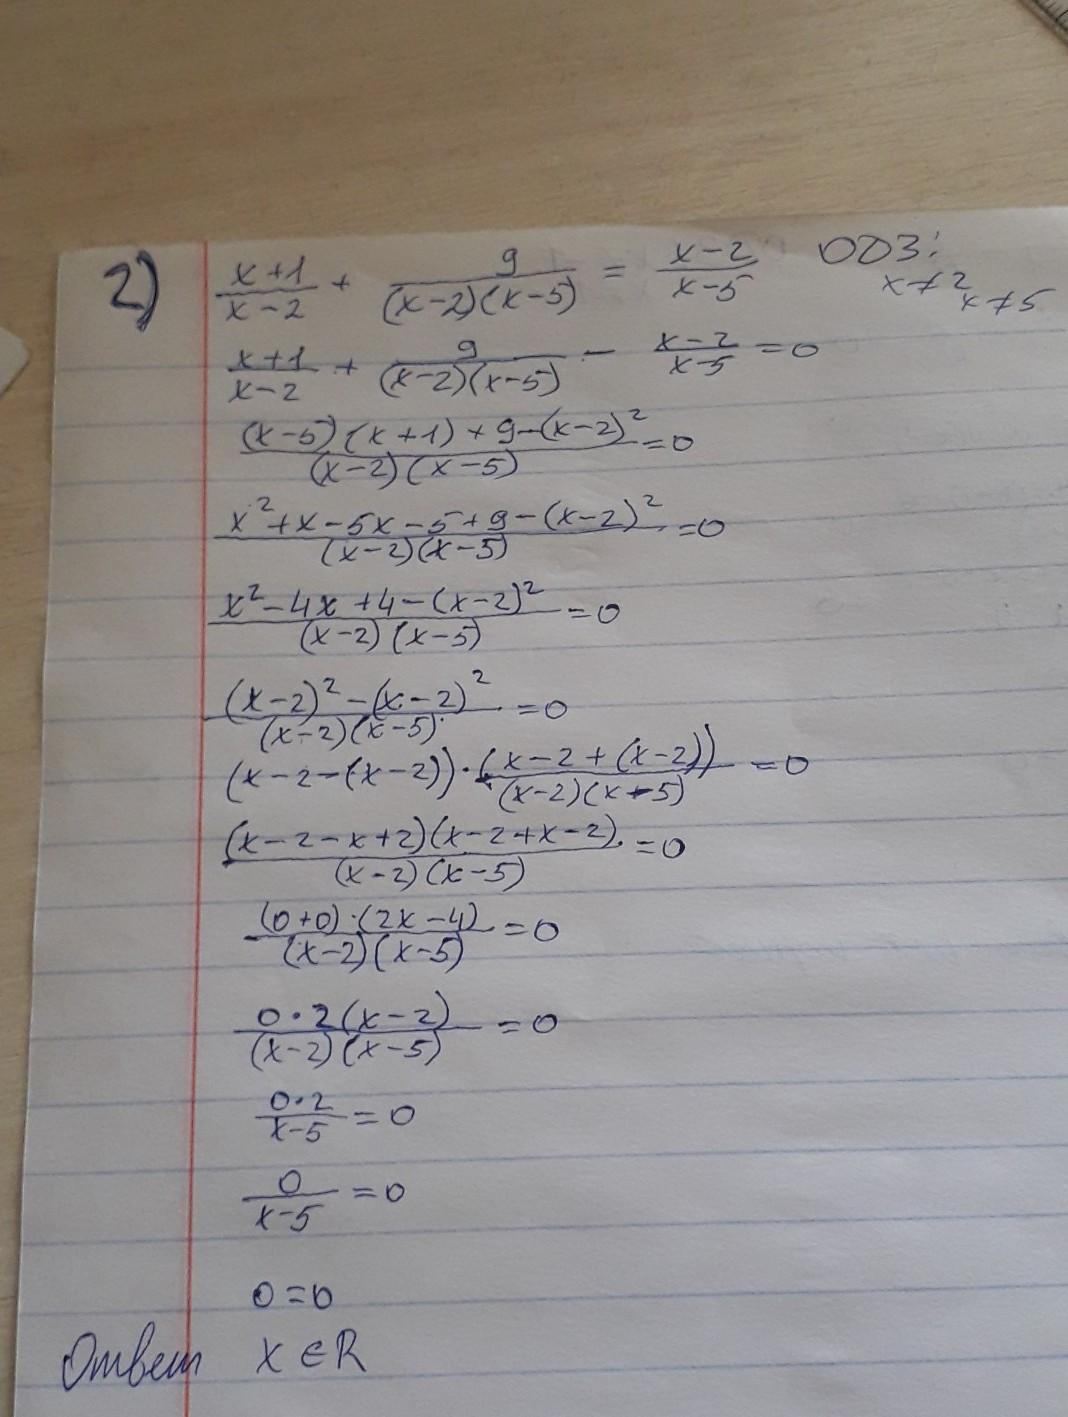 2) (x+1)/(x-2) + 9/((x-2)(x-5)) = (x-2)/(x-5) ОДЗ:
x≠2 x≠5
(x+1)/(x-2) + 9/((x-2)(x-5)) - (x-2)/(x-5) = 0
((x-5)(x+1)+9-(x-2)²)/((x-2)(x-5)) = 0
(x²+x-5x-5+9-(x-2)²)/((x-2)(x-5)) = 0
(x²-4x+4-(x-2)²)/((x-2)(x-5)) = 0
((x-2)²-(x-2)²)/((x-2)(x-5)) = 0
(x-2-(x-2))·(x-2+(x-2))/((x-2)(x-5)) = 0
((x-2-x+2)(x-2+x-2))/((x-2)(x-5)) = 0
((0+0)·(2x-4))/((x-2)(x-5)) = 0
(0·2(x-2))/((x-2)(x-5)) = 0
(0·2)/(x-5) = 0
0/(x-5) = 0
0=0
Ответ x∈R